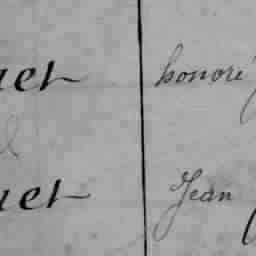 uet honoré
uet Jean